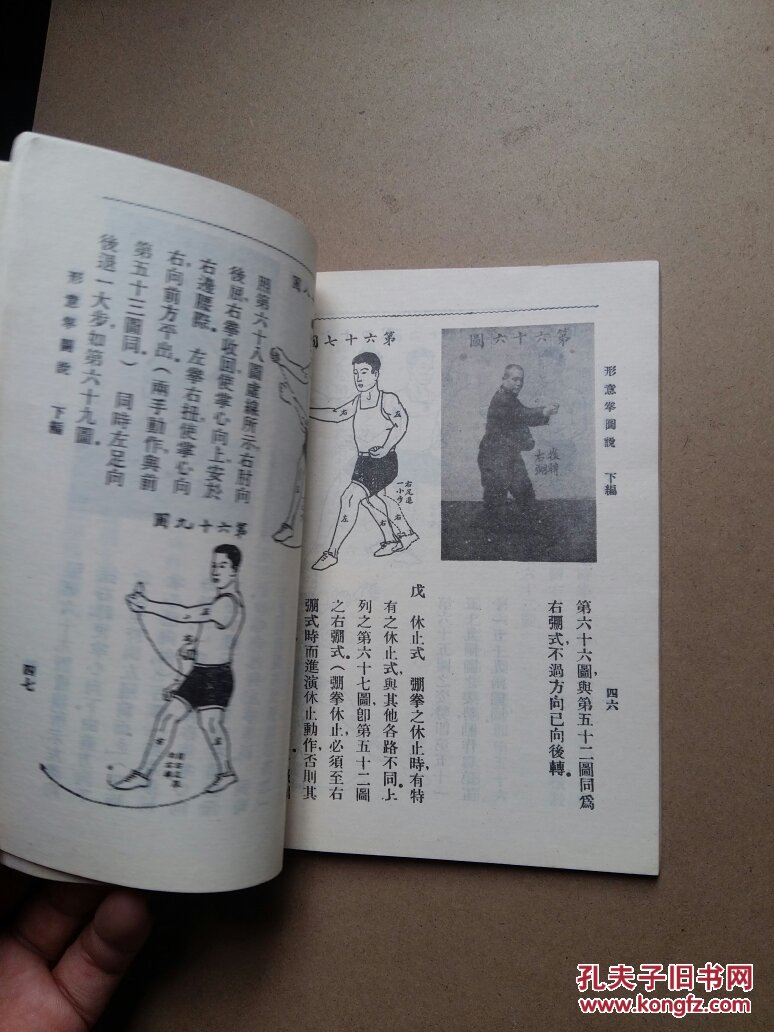 形意拳圖說　下編
四六
第六十六圖
後轉
右弸
第六十六圖，與第五十二圖同為
右弸式，不過方向已向後轉。
第六十七圖
右
左
右足進
一小步
左
右
戊　休止式　弸拳之休止時，有特
有之休止式，與其他各路不同。上
列之第六十七圖，卽第五十二圖
之右弸式（弸拳休止，必須至右
弸式時而進演休止動作，否則其
照第六十八圖虛線所示，右肘向
後展，右拳收回，使掌心向上，安於
右邊腰際。左拳右扭，使掌心向
右，向前方平出。（兩手動作，與前
第五十三圖同）同時左足向
後退一大步，如第六十九圖。
第六十九圖
左
右
左
形意拳圖說　下編
四七
孔夫子旧书网
www.kongfz.com